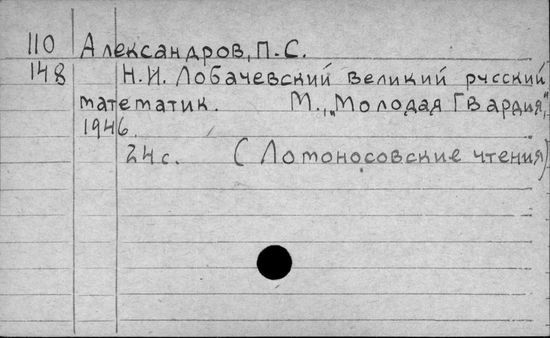 110 Александров, П.С.
148 Н.И. Лобачевский великий русский
математик. М., „Молодая Гвардия",
1946.
24 с. (Ломоносовские чтения)